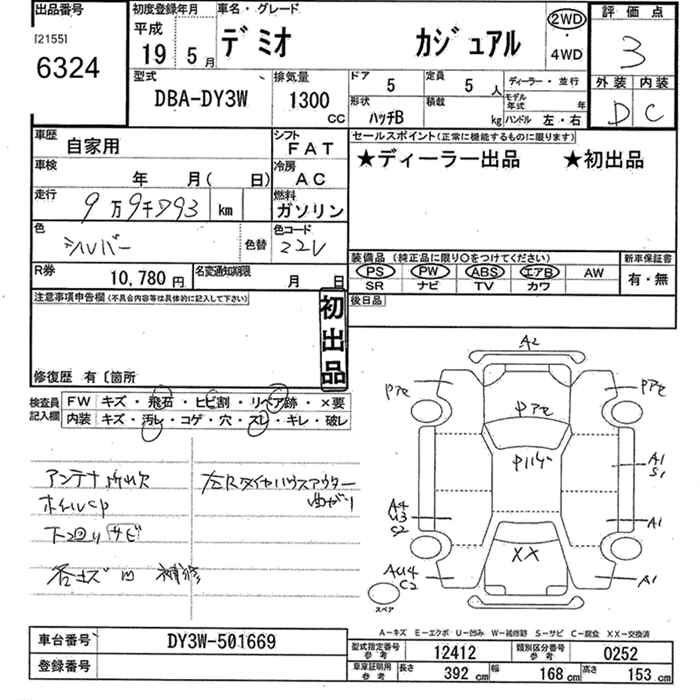 出品番号
[2155]
6324
初度登録年月
平成
19年 5月
車名・グレード
デミオ カジュアル
2WD
・
4WD
評価点
3
型式
DBA-DY3W
排気量
1300
CC
ドア
5
定員
5人
形状
ハッチB
積載
kg
ディーラー・並行
モデル年式 年
ハンドル 左・右
外装 内装
D C
車歴
自家用
シフト
FAT
車検
年 月( 日)
冷房
AC
走行
9万9千793 km
燃料
ガソリン
色
シルバー
色替
色コード
22V
セールスポイント(正常に機能するものに限ります)
★ディーラー出品 ★初出品
R券
10,780円
名変通知期限
月 日
装備品(純正品に限り○をつけてください)
PS PW ABS エアB AW
SR ナビ TV カワ
新車保証書
有・無
注意事項申告欄(不具合内容等は具体的に記入して下さい)
初出品
後日品
修復歴 有〔箇所
検査員
記入欄
FW キズ・飛石・ヒビ割・リペア跡・×要
内装 キズ・汚レ・コゲ・穴・スレ・キレ・破レ
アンテナ
ホイルcp
下回りサビ
補修
左Rタイヤハウスアウター
まがり
A2
Pアセ
Pアセ
Pアセ
A1
S1
A4
U3
S2
A1
XX
AU4
C2
A1
スペア
A－キズ E－エクボ U－凹み W－補修跡 S－サビ C－腐食 XX－交換済
車台番号
DY3W-501669
登録番号
型式指定番号
参考
12412
類別区分番号
参考
0252
車庫証明用
参考
長さ 392cm
幅 168cm
高さ 153cm